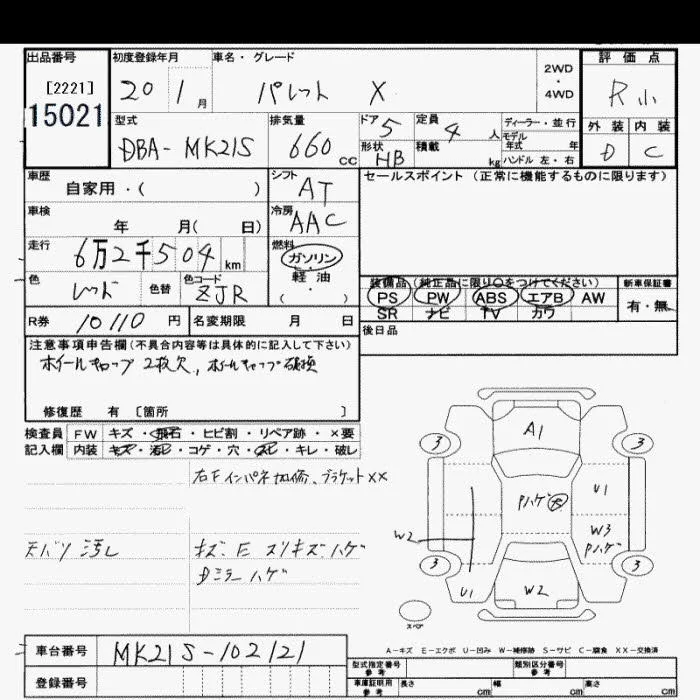 出品番号 初度登録年月 車名・グレード 評価点
[2221] 20 1月 パレット X 2WD・4WD R小
15021
型式 排気量 ドア 5 定員 4人 ディーラー・並行 外装 内装
DBA-MK21S 660cc 形状 HB 積載 kg モデル年式 年 D C
ハンドル 左・右
車歴 シフト セールスポイント (正常に機能するものに限ります)
自家用・( ) AT
車検 冷房
年 月( 日) AAC
走行 6万2千504km 燃料
ガソリン
色 レッド 色替 色コード ZJR 軽油
・( )
装備品(純正品に限り○をつけてください) 新車保証書
PS PW ABS エアB AW 有・無
SR ナビ TV カワ
R券 10110円 名変期限 月 日
後日品
注意事項申告欄(不具合内容等は具体的に記入して下さい)
ホイールキャップ 2枚欠、ホイールキャップ破損
修復歴 有 [箇所 ]
検査員 FW キズ・飛石・ヒビ割・リペア跡・×要
記入欄 内装 キズ・汚レ・コゲ・穴・スレ・キレ・破レ
右Fインパネ加修、ブラケットXX
天バリ 汚レ
キズ E スリキズ ハゲ
Dミラーハゲ
A1
3 3
Pハゲ大 U1
W2 W3
Pハゲ
3 3
U1 W2
スペア
A-キズ E-エクボ U-凹み W-補修跡 S-サビ C-腐食 XX-交換済
車台番号 MK21S-102121
型式指定番号 参考 類別区分番号 参考
登録番号
車庫証明用 参考 長さ cm 幅 cm 高さ cm